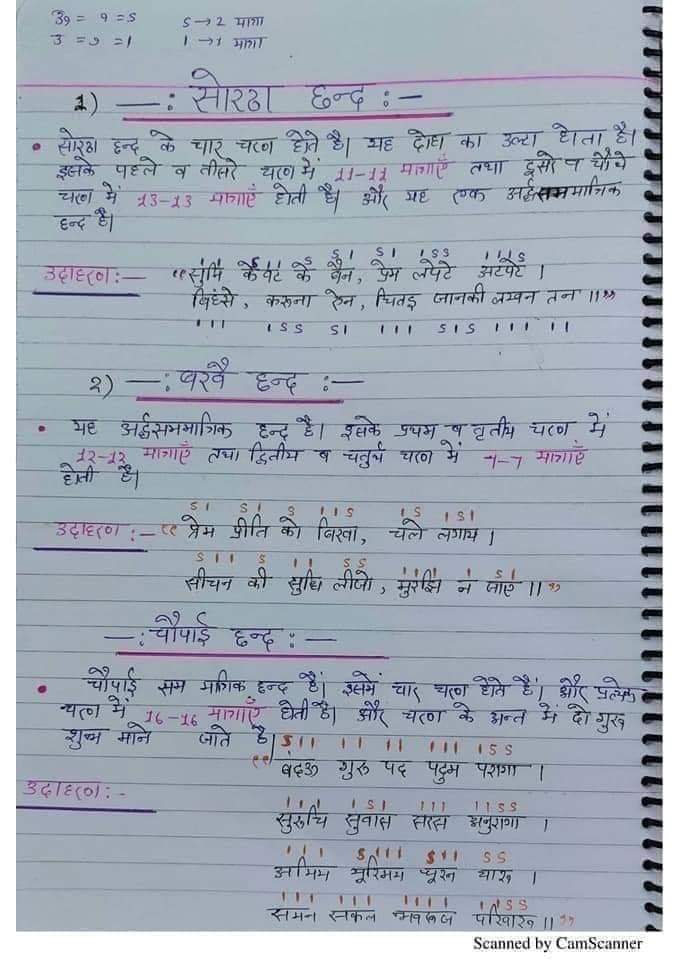 S → 2 मात्रा
1 → 1 मात्रा
1) —: सोरठा छन्द :—
• सोरठा छन्द के चार चरण होते है। यह दोहा का उल्टा होता है।
इसके पहले व तीसरे चरण में 11-11 मात्राएँ तथा दूसरे व चौथे
चरण में 13-13 मात्राएँ होती है। और यह एक अर्द्धसममात्रिक
छन्द है।
S S I S I I S S I I I S
उदाहरण :— "सुनि केवट के बैन, प्रेम लपेटे अटपटे।
बिहंसे, करुना ऐन, चितइ जानकी लखन तन॥"
I I I I S S S I I I I S I S I I I I I
2) —: बरवै छन्द :—
• यह अर्द्धसममात्रिक छन्द है। इसके प्रथम व तृतीय चरण में
12-12 मात्राएँ तथा द्वितीय व चतुर्थ चरण में 7-7 मात्राएँ
होती है।
S I S I S I I S I S I S I
उदाहरण :— "प्रेम प्रीति को बिरवा, चले लगाय।
S I I S I I S S I I I I S I
सीचन की सुधि लीजो, मुरझि न जाए॥"
—: चौपाई छन्द :—
• चौपाई सम मात्रिक छन्द हैं। इसमें चार चरण होते हैं। और प्रत्येक
चरण में 16-16 मात्राएँ होती है। और चरण के अन्त में दो गुरु
शुभ माने जाते है।
S I I I I I I I I I I S S
"बंदऊ गुरु पद पदुम परागा।
उदाहरण :-
I I I I S I I I I I I S S
सुरुचि सुवास सरस अनुरागा।
I I I S I I I S I I S S
अमिय मूरिमय चूरन चारू।
I I I I I I I I I I I I S S
समन सकल भवरुज परिवारू॥"
Scanned by CamScanner